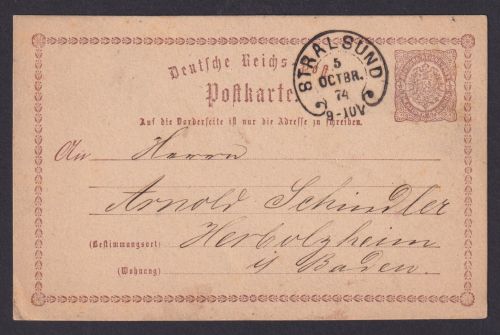 Deutsche Reichs-
Postkarte
STRALSUND
5
OCTBR.
74
9-10V
Auf die Vorderseite ist nur die Adresse zu schreiben.
An Herrn
Arnold Schindler
(Bestimmungsort) Herbolzheim
(Wohnung) i/ Baden.